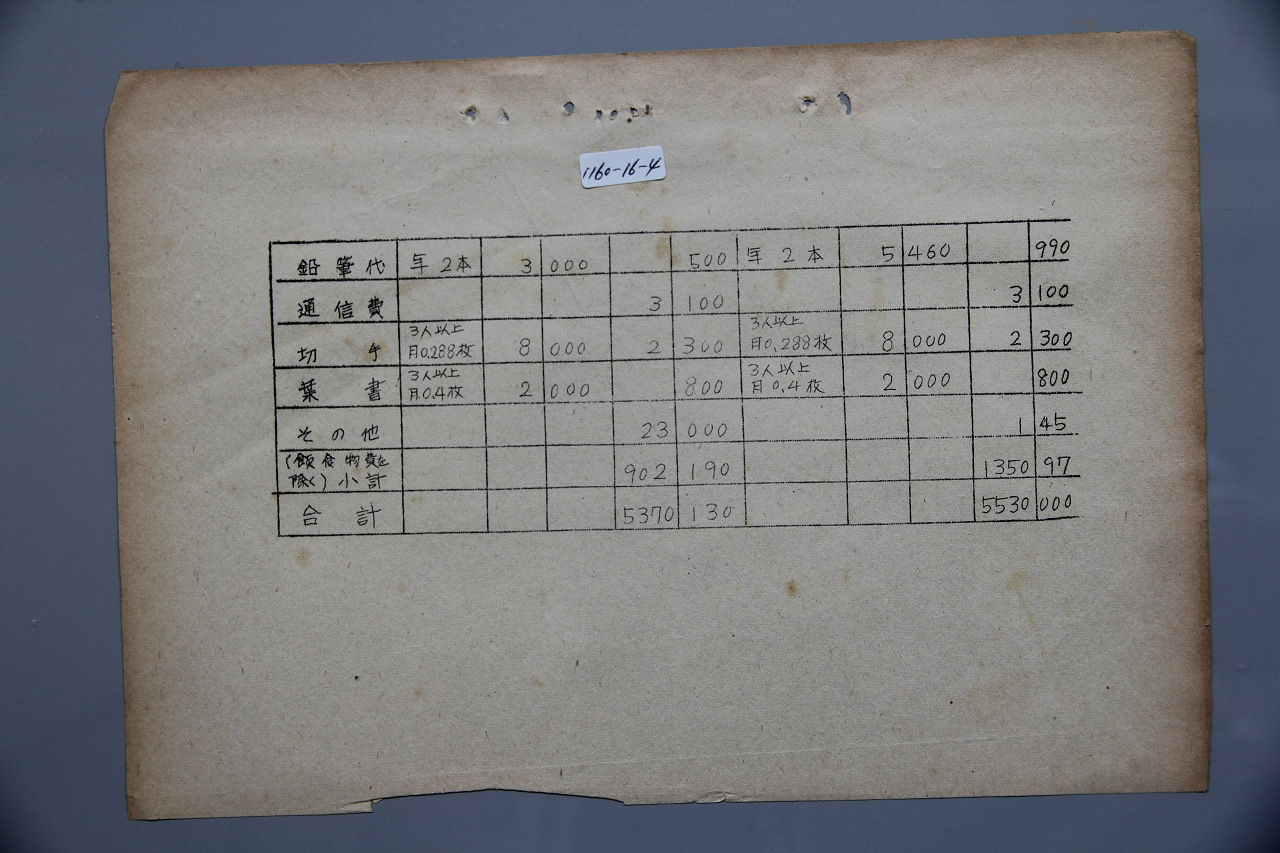 1160-16-4
鉛筆代 年2本 3 000 500 年2本 5 460 990
通信費 3 100 3 100
3人以上 3人以上
切手 月0.288枚 8 000 2 300 月0.288枚 8 000 2 300
3人以上 3人以上
葉書 月0.4枚 2 000 800 月0.4枚 2 000 800
その他 23 000 1 45
(飲食物費を
除く)小計 902 190 1350 97
合計 5370 130 5530 000